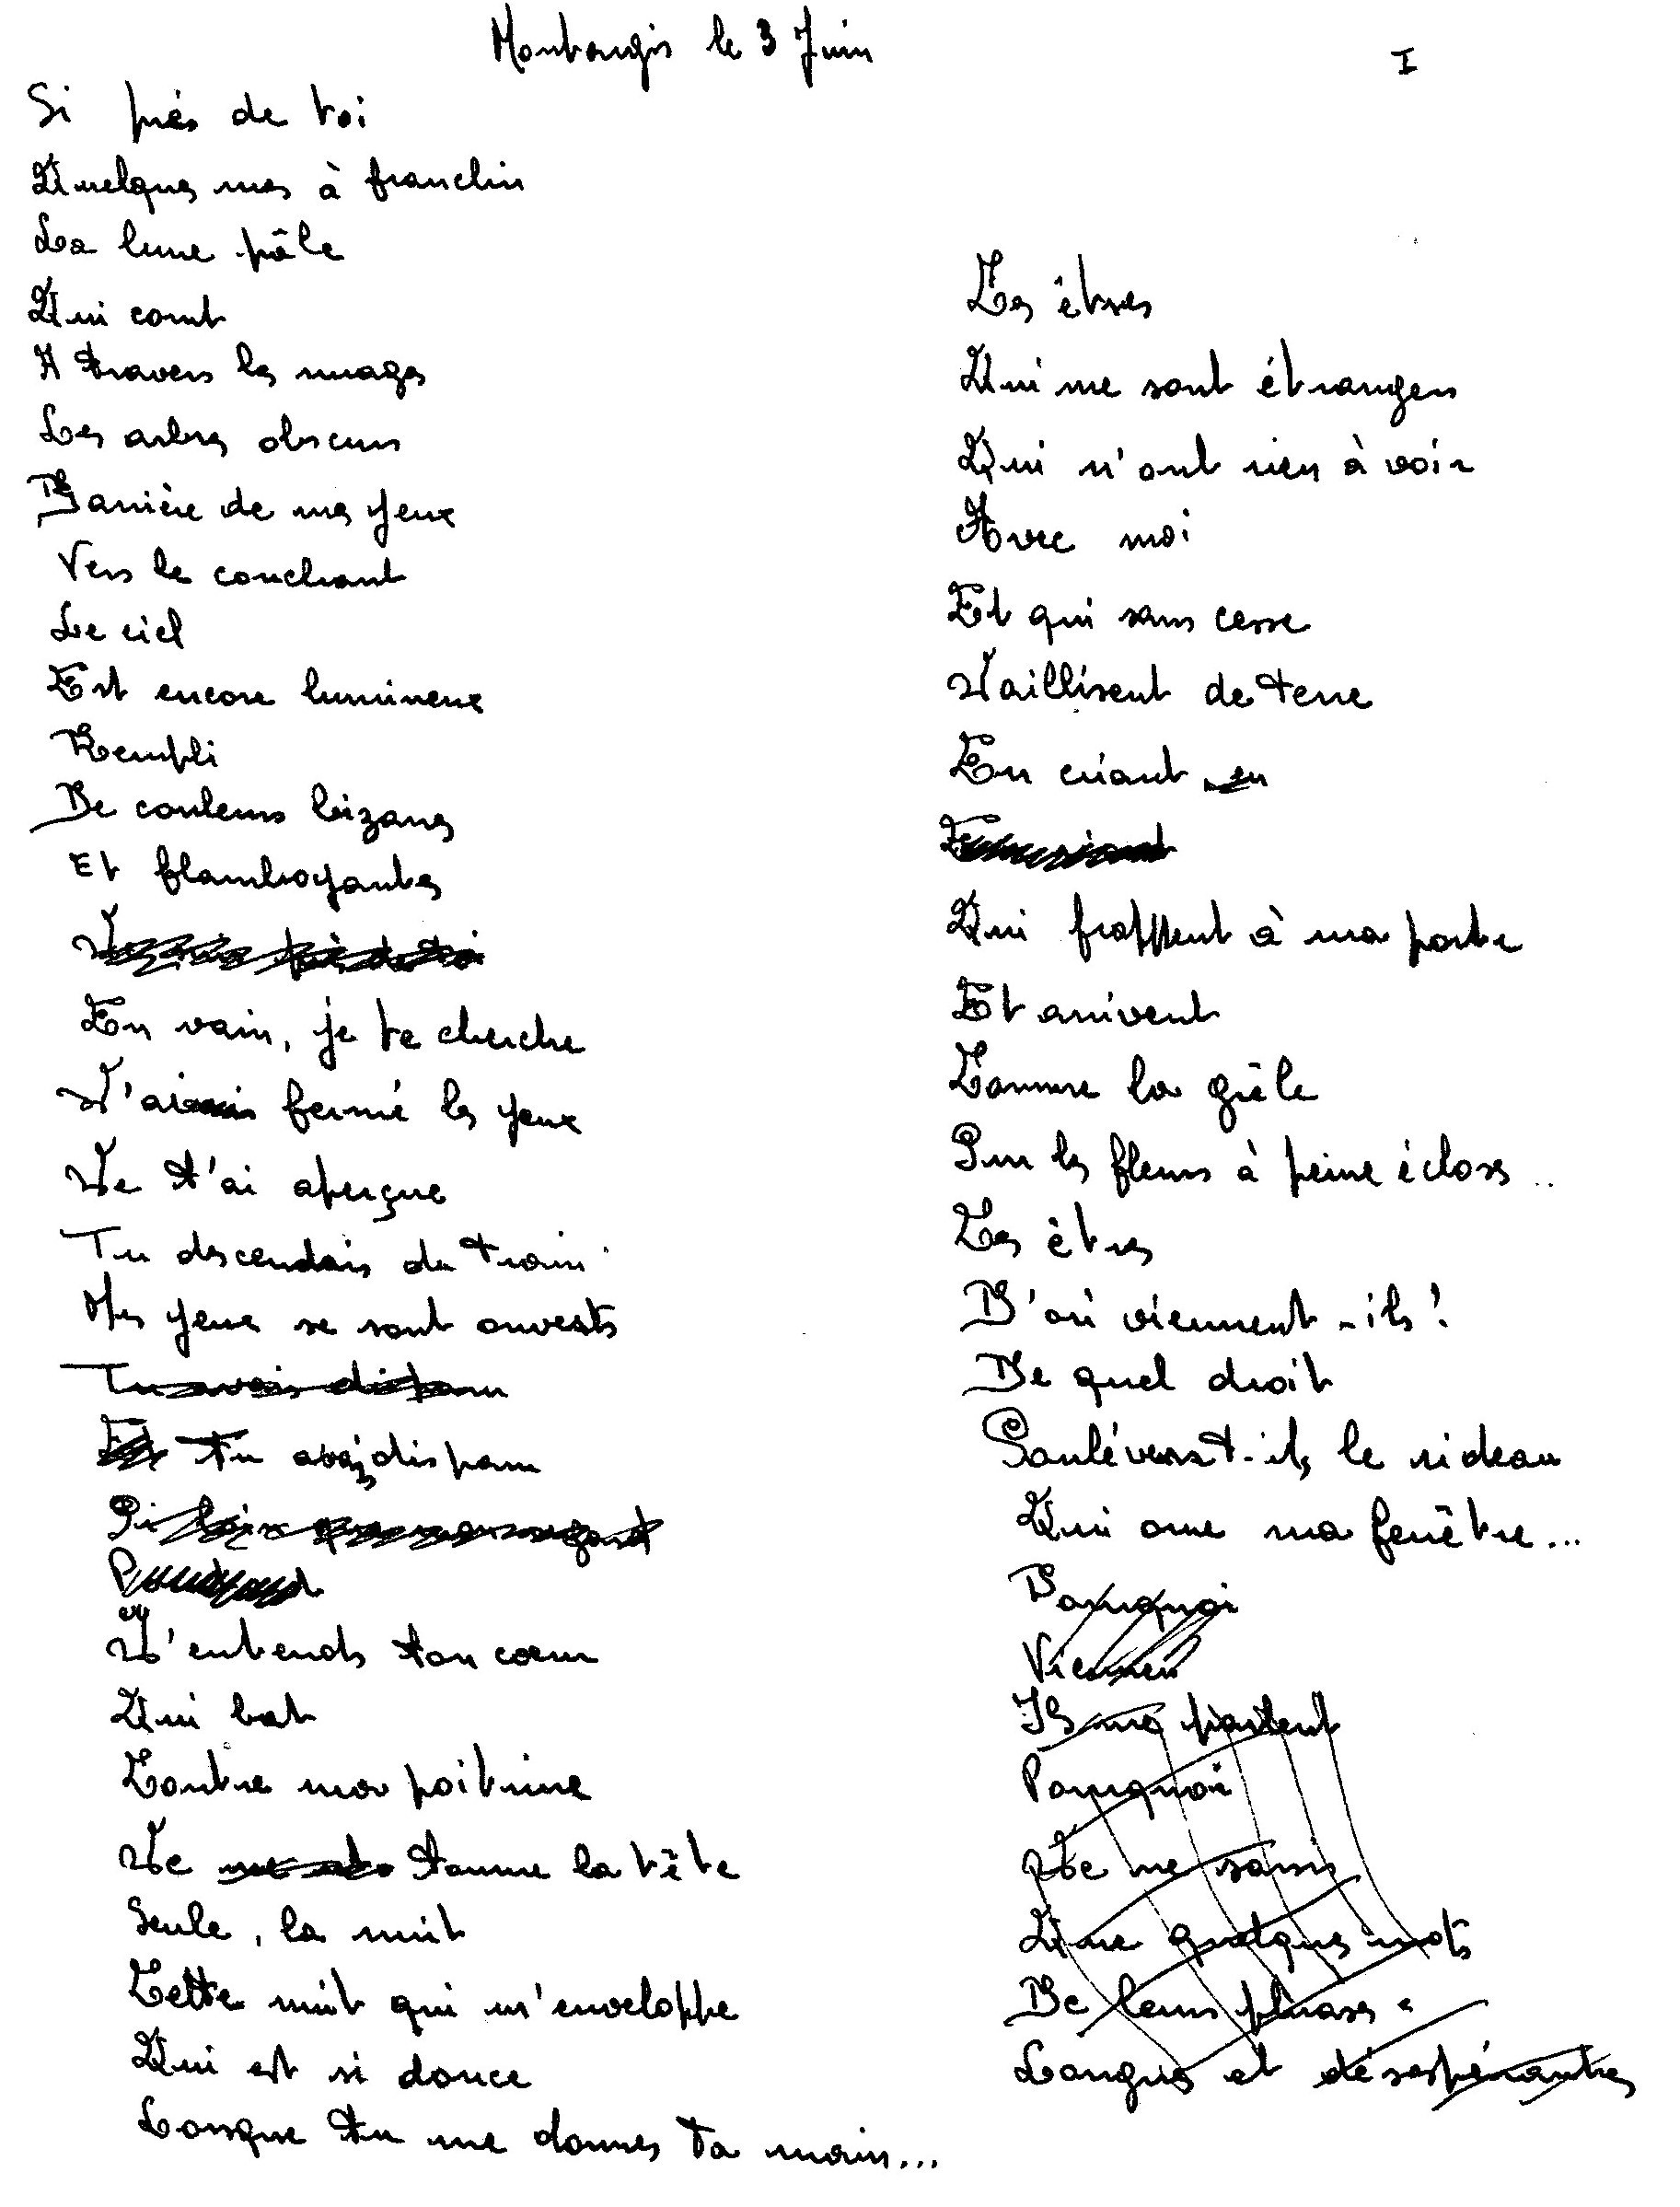 Montargis le 3 Juin
I
Si près de toi
Quelques rues à franchir
La lune pâle
Qui court
A travers les nuages
Les arbres obscurs
Barrière de mes yeux
Vers le couchant
Le ciel
Est encore lumineux
Rempli
De couleurs bizarres
Et flamboyantes
En vain, je te cherche
J'ai fermé les yeux
Je t'ai aperçue
Tu descendais du train
Mes yeux se sont ouverts
Tu avais disparu
Et Tu avais disparu
Si loin que mon regard
J'entends ton cœur
Qui bat
Contre ma poitrine
Je tourne la tête
Seule, la nuit
Cette nuit qui m'enveloppe
Qui est si douce
Lorsque tu me donnes ta main...
Les êtres
Qui me sont étrangers
Qui n'ont rien à voir
Avec moi
Et qui sans cesse
Jaillisent de terre
En criant en
Qui frappent à ma porte
Et arrivent
Comme la grêle
Sur les fleurs à peine écloses..
Les êtres
D'où viennent-ils!
De quel droit
Soulèvent-ils le rideau
Qui orne ma fenêtre...
Pourquoi
Viennen
Ils me parlent
Pourquoi
Je ne saisis
Que quelques mots
De leurs phrases
Longues et désespérantes